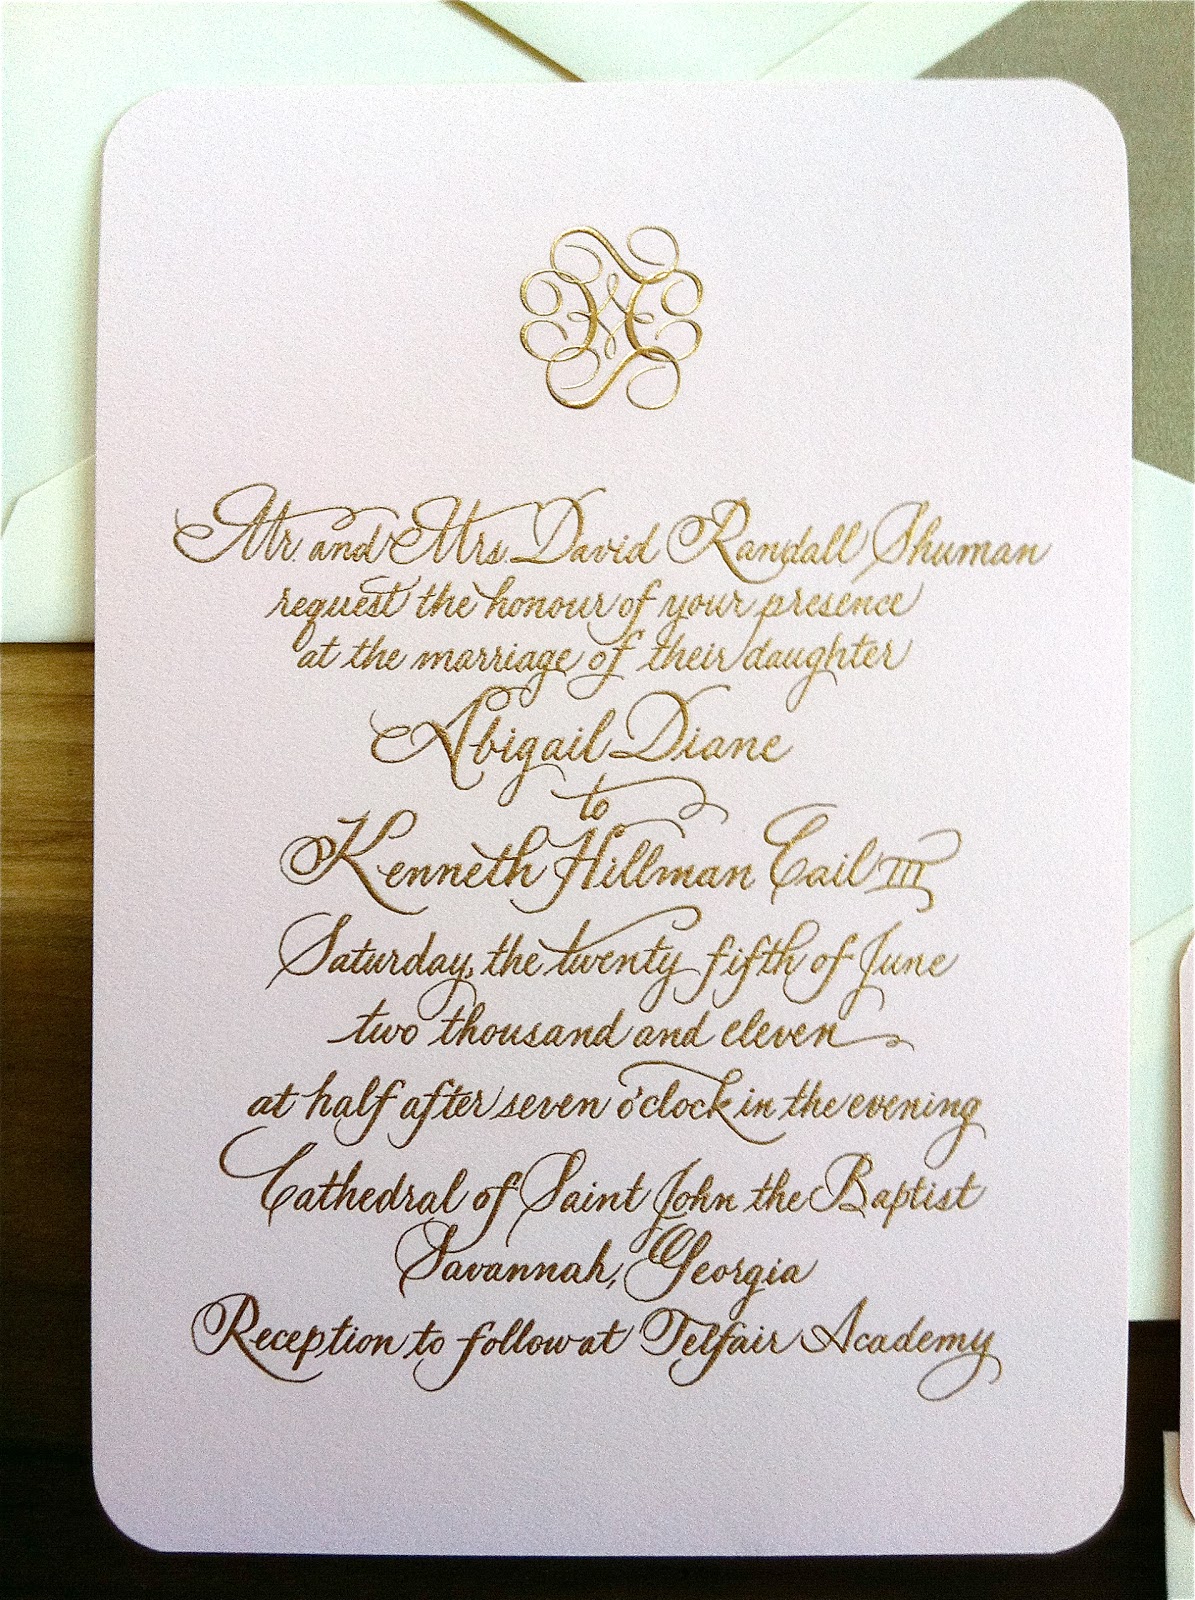 Mr. and Mrs. David Randall Shuman
request the honour of your presence
at the marriage of their daughter
Abigail Diane
to
Kenneth Hillman Cail III
Saturday, the twenty fifth of June
two thousand and eleven
at half after seven o'clock in the evening
Cathedral of Saint John the Baptist
Savannah, Georgia
Reception to follow at Telfair Academy